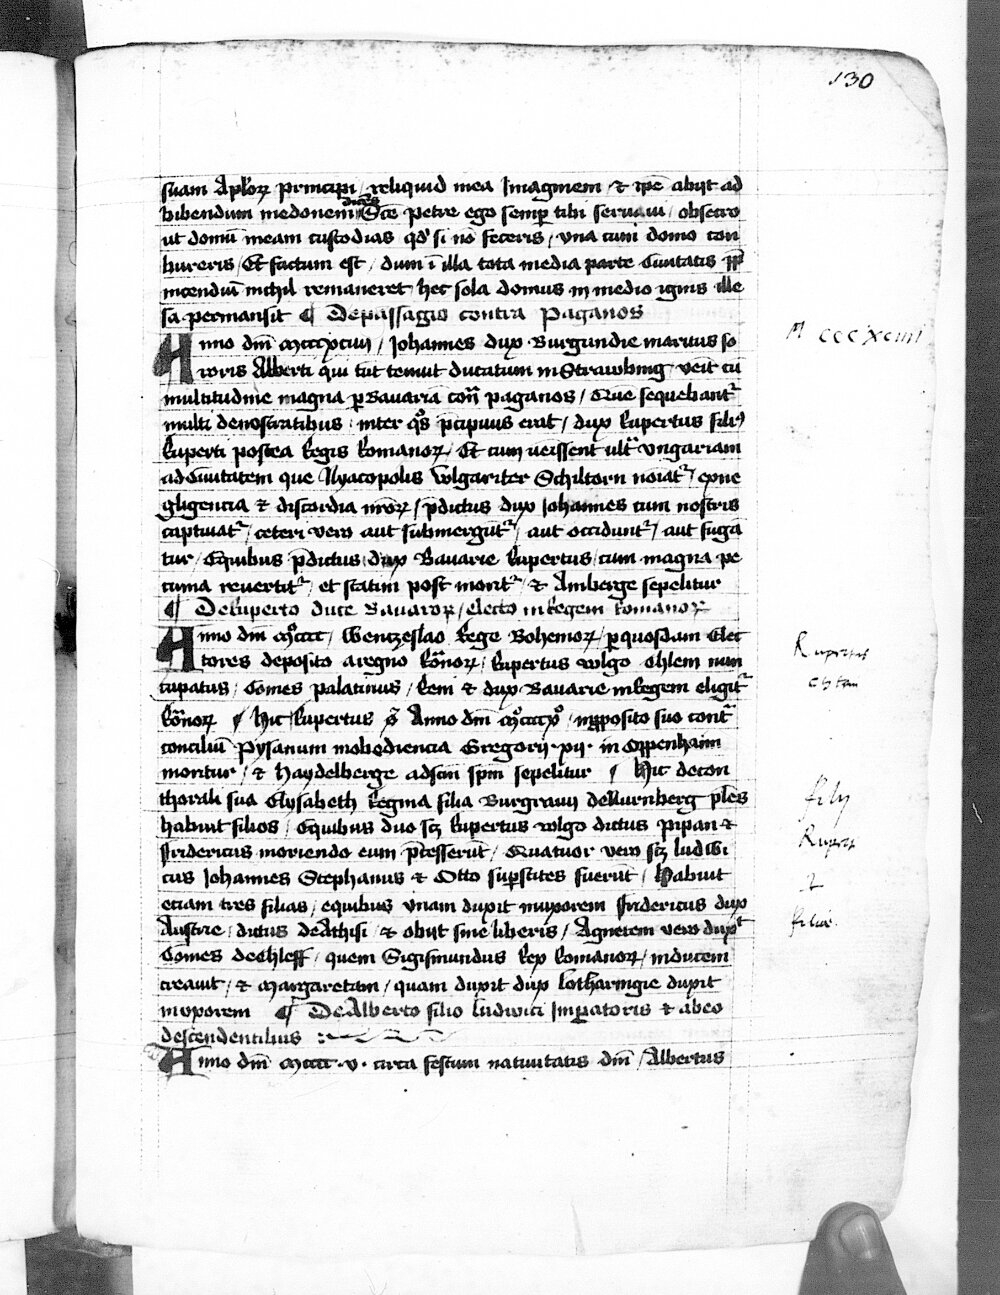 130
suam Aplōꝝ principi / reliquid mea Imaginem & ip̄e abijt ad
bibendum medonem dicēs Scē petre ego semp̱ tibi seruaui / obsecro
ut domū meam custodias qd̕ si nō feceris / una cum domo con
bureris / Et factum est / dum ī illa tota media parte Ciuitatis ꝓpt̄
incendiū nichil remaneret hec sola domus in medio ignis ille
sa permansit ¶ De passagio contra Paganos
Anno dn̄i mͦcccͦxciiii / Johannes dux Burgundie maritus so
roris Alberti qui tūc tenuit ducatum in Strawbing / venit cū
multitudine magna ꝑ Bauaria contͣ paganos / Quē sequebantᷣ
multi de nostratibus / inter qͦs p̄cipuus erat / dux Rupertus filiꝰ
Ruperti postea Regis Romanoꝝ / Et cum venissent ultͣ vngariam
ad Ciuitatem que Nyacopolis wlgariter Schiltorn noīatᷣ / ex ne
gligencia & discordia nr̄oꝝ / p̄dictus dux Johannes cum nostris
captiuatᷣ / ceteri vero aut submergūtᷣ / aut occiduntᷣ / aut fuga
tur / E quibus p̄dictus dux Bauarie Rupertus / cum magna pe
cunia reuertitᷣ / et statim post moritᷣ / & Amberge sepelitur
¶ De Ruperto duce Bauaroꝝ / electo in Regem Romanoꝝ
Anno dn̄i mͦcccc / Wentzeslao Rege Bohemoꝝ / ꝑ quosdam Elec
tores deposito a regno Rōnoꝝ / Rupertus wlgo Chlem nun
cupatus / Comes palatinus / Reni & dux Bauarie in Regem eligitᷣ
Rōnoꝝ ¶ Hic Rupertus Anno dn̄i mͦccccxͦ / in ꝓposito suo contͣ
conciliū Pysanum in obediencia Gregorij · xij · in Oppenhaim
moritur / & Haydelberge ad scm̄ spm̄ sepelitur ¶ Hic de con
thorali sua Elysabeth Regina filia Burgrauij de Nurnberg pl̄es
habuit filios / E quibus duo scꝫ Rupertus wlgo dictus Pipan &
Fridericus moriendo eum p̄cesserūt / Quatuor vero scꝫ ludwi
cus Johannes Stephanus & Otto suꝑstites fuerūt / Habuit
etiam tres filias / e quibus vnam duxit in vxorem Fridericus dux
Austrie / dictus de Athisi / & obijt sine liberis / Agnetem vero duxᷣ
Comes de Chleff / quem Sigismundus Rex Romanoꝝ / in ducem
creauit / & Margaretam / quam duxit dux Lotharingie duxit
in vxorem ¶ De Alberto filio ludwici Imꝑatoris & ab eo
descendentibus
Anno dn̄i mͦcccc · v · circa festum natiuitatis dn̄i / Albertus
M cccxciiii
Rupertus
filij
Ruperti
2
filie